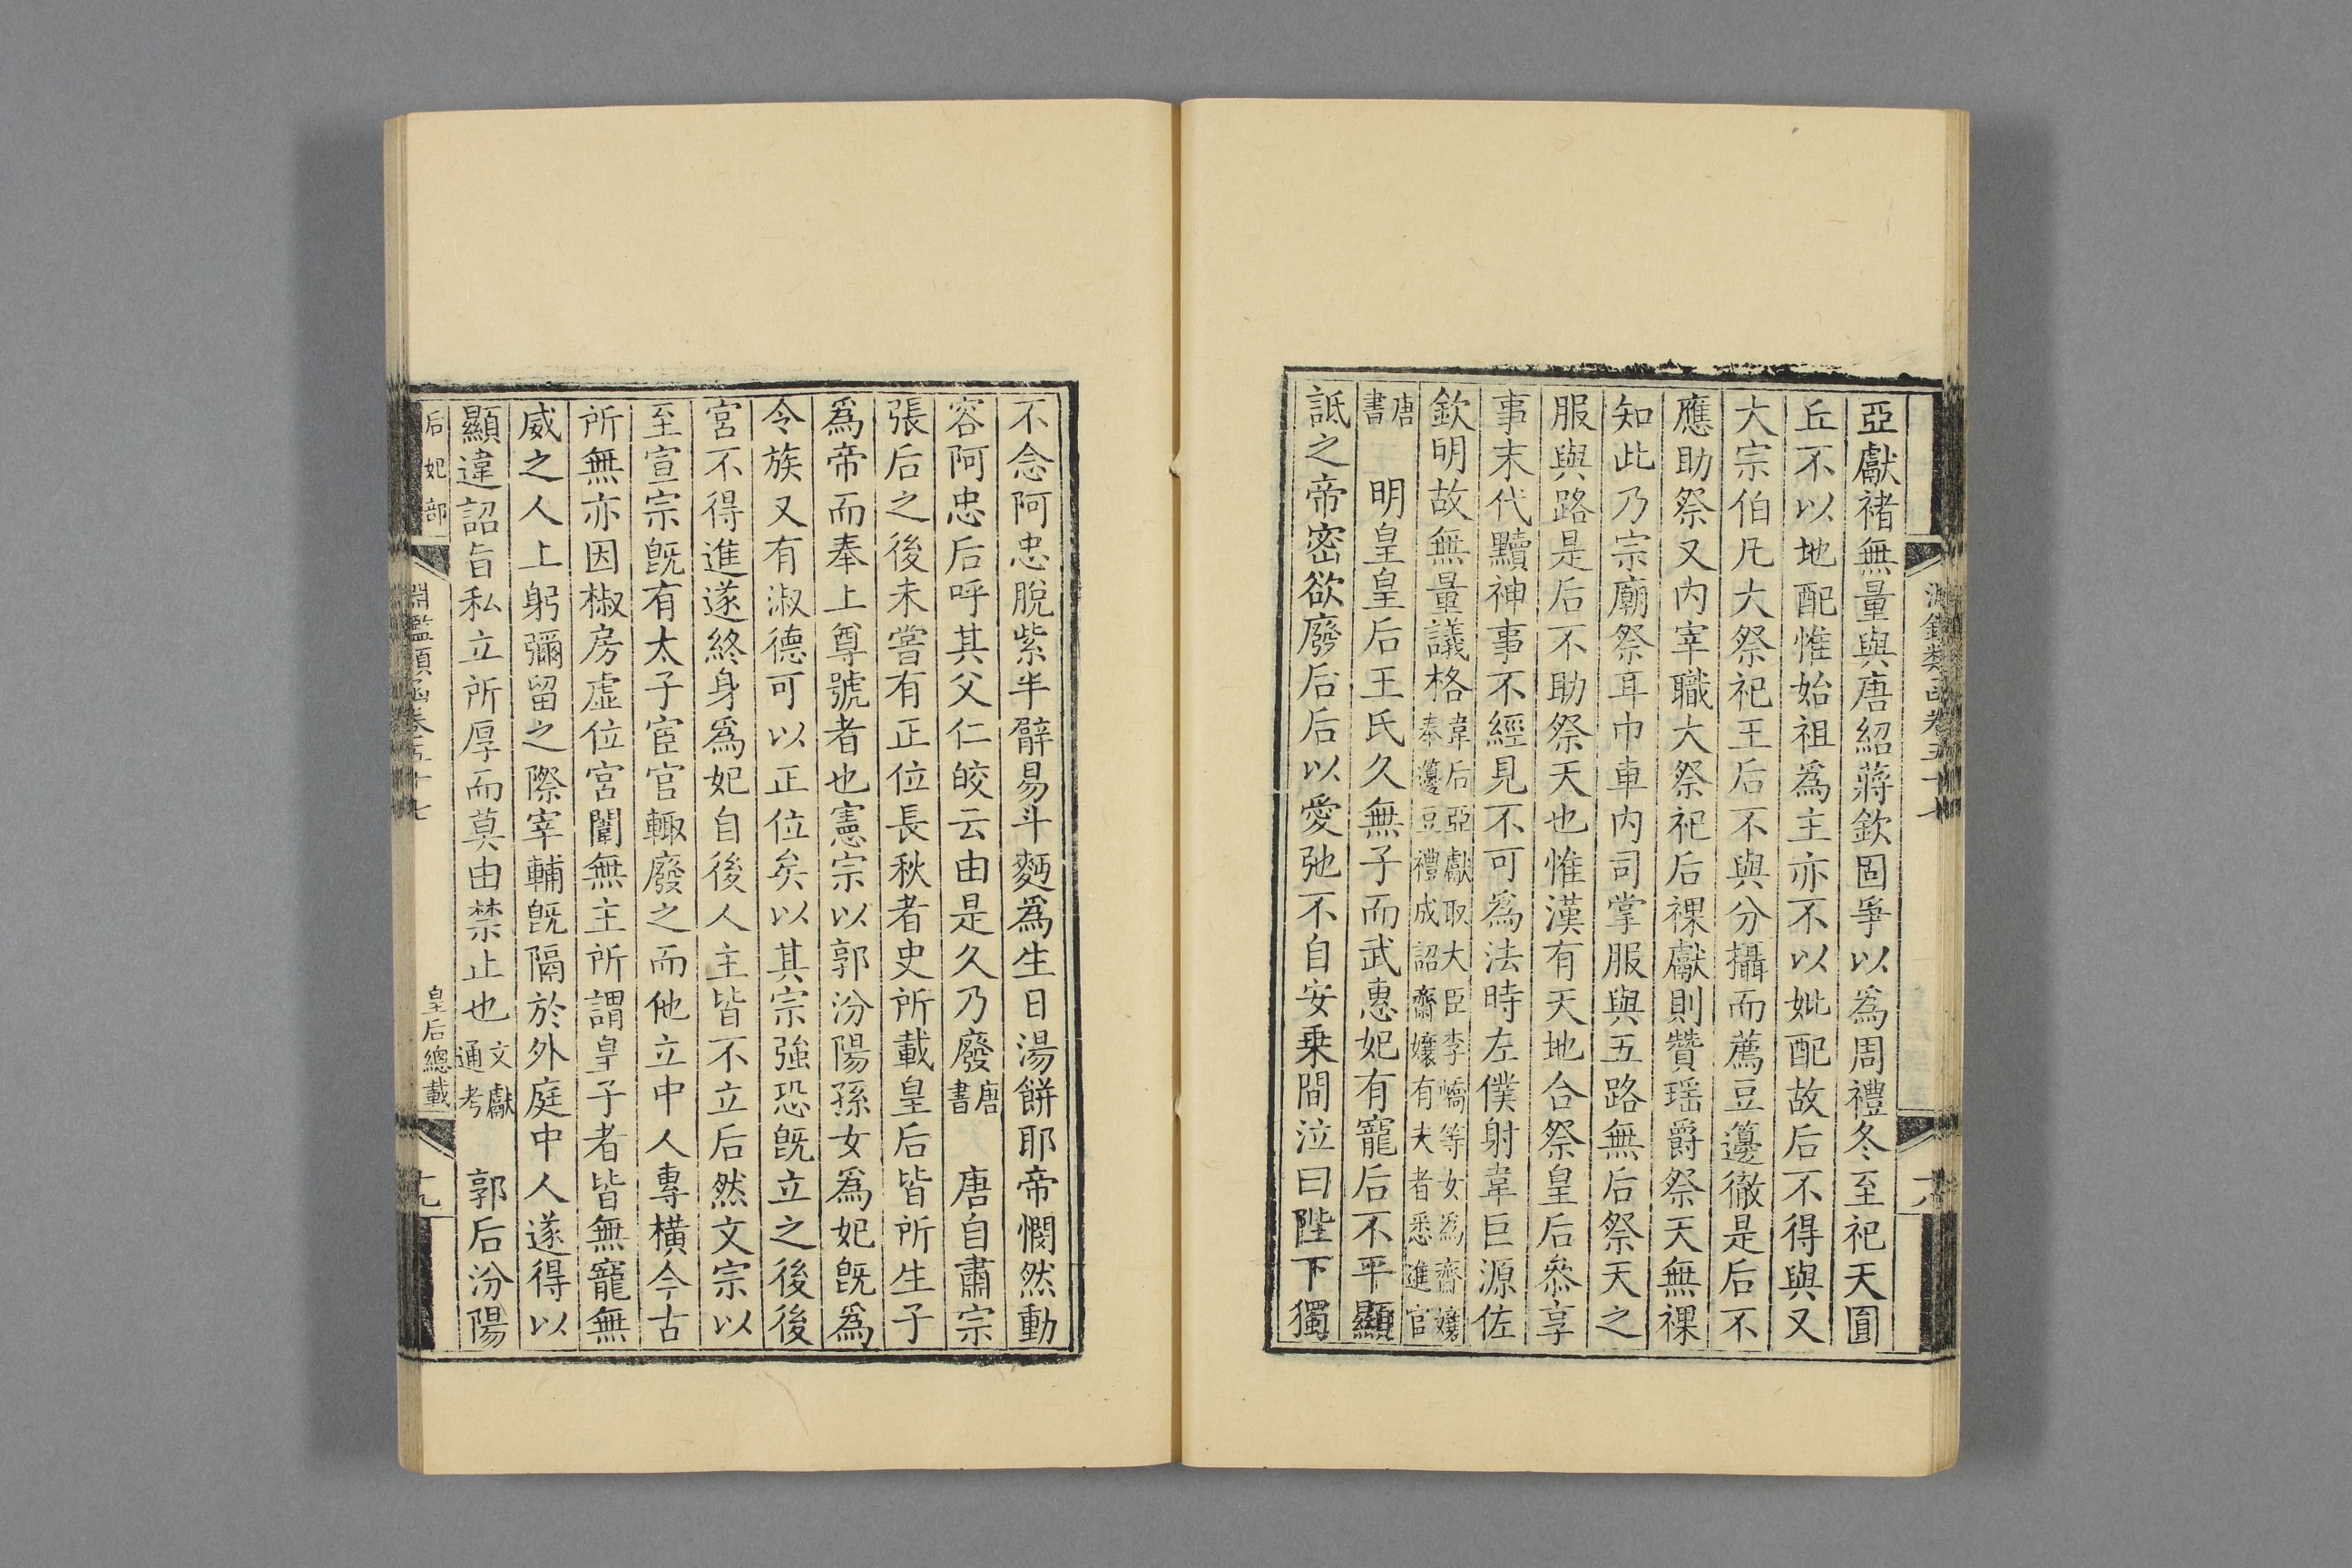 亞獻褚無量與唐紹蔣欽固爭以爲周禮冬至祀天圓
丘不以地配惟始祖爲主亦不以妣配故后不得與又
大宗伯凡大祭祀王后不與分攝而薦豆籩徹是后不
應助祭又内宰職大祭祀后祼獻則贊瑶爵祭天無祼
知此乃宗廟祭耳巾車内司掌服與五路無后祭天之
服與路是后不助祭天也惟漢有天地合祭皇后叅享
事末代黷神事不經見不可爲法時左僕射韋巨源佐
欽明故無量議格韋后亞獻取大臣李嶠等女爲齋孃
奉籩豆禮成詔齋孃有夫者悉進官
唐書　明皇皇后王氏久無子而武惠妃有寵后不平顯
詆之帝密欲廢后后以愛弛不自安乗間泣曰陛下獨
淵鑑類函卷五十七
不念阿忠脫紫半臂易斗麪爲生日湯餅耶帝憫然動
容阿忠后呼其父仁皎云由是久乃廢唐書　唐自肅宗
張后之後未嘗有正位長秋者史所載皇后皆所生子
爲帝而奉上尊號者也憲宗以郭汾陽孫女爲妃旣爲
令族又有淑德可以正位矣以其宗強恐旣立之後後
宮不得進遂終身爲妃自後人主皆不立后然文宗以
至宣宗旣有太子宦官輙廢之而他立中人專橫今古
所無亦因椒房虛位宮闈無主所謂皇子者皆無寵無
威之人上躬彌留之際宰輔旣隔於外庭中人遂得以
顯違詔旨私立所厚而莫由禁止也文獻通考　郭后汾陽
后妃部
淵鑑類函卷五十七
皇后總載
十九